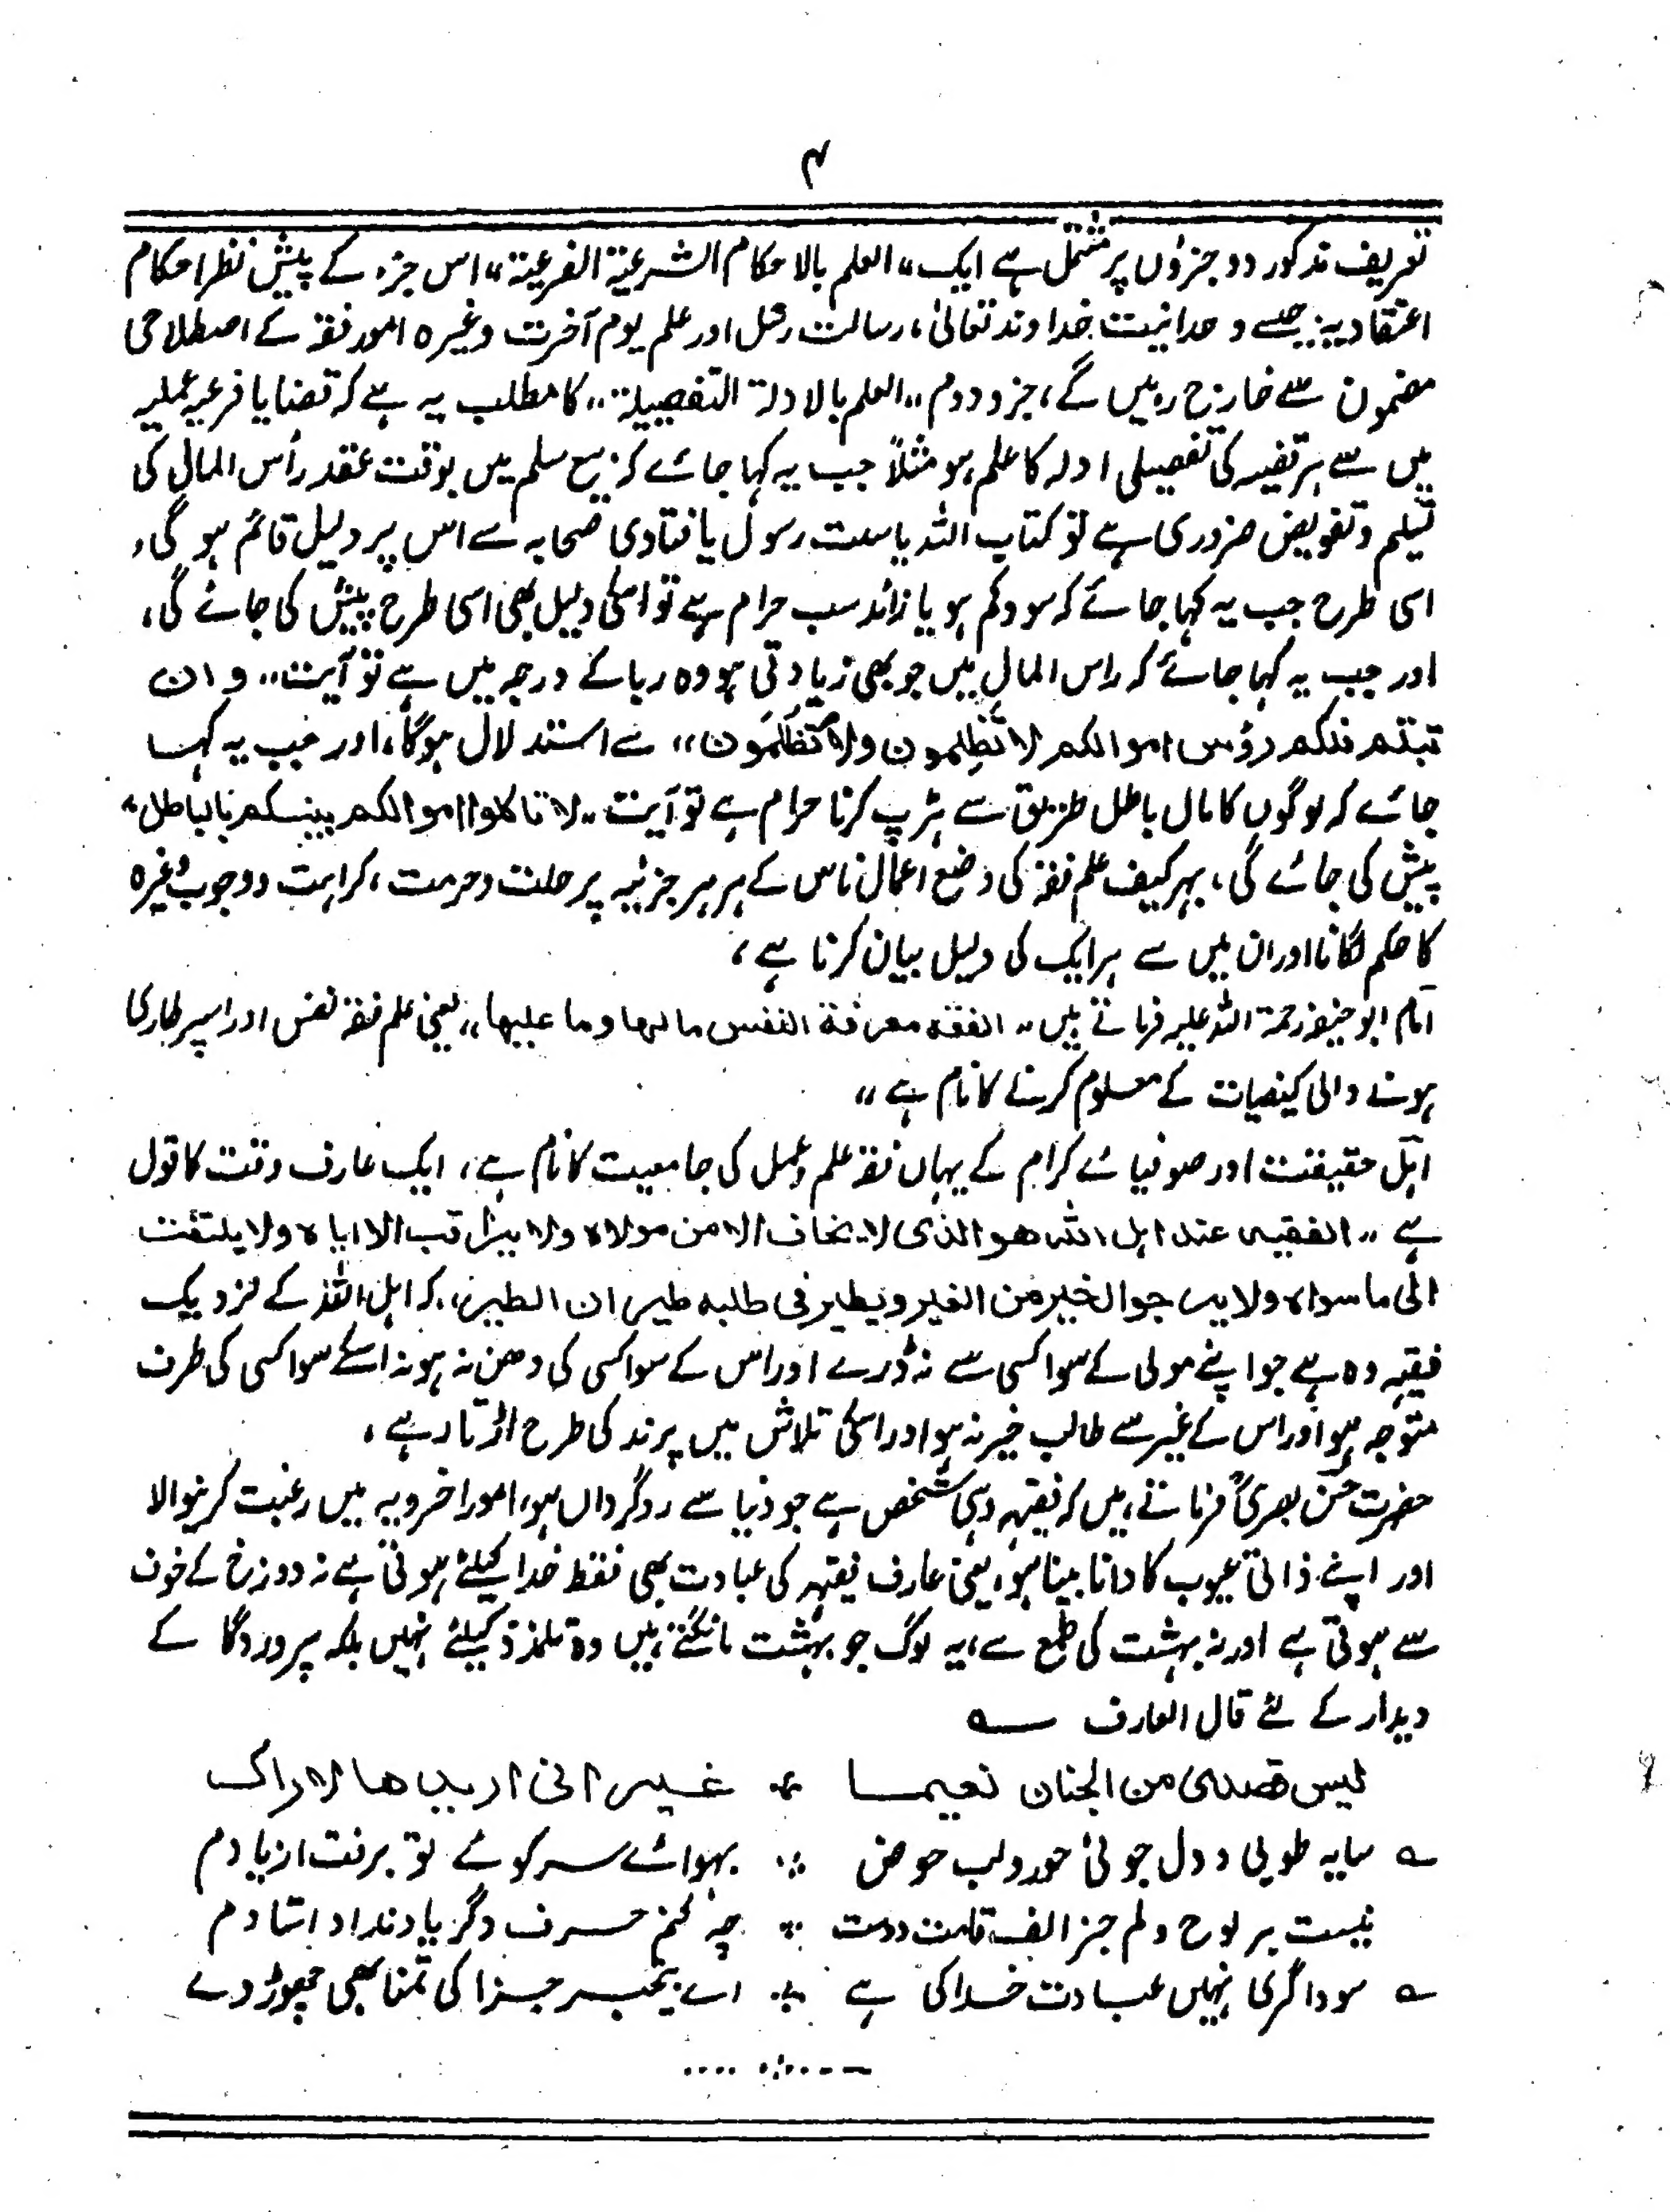 ۴
تعریف مذکور دو جزؤں پر مشتمل ہے ایک ،،العلم بالاحکام الشرعیۃ الفرعیۃ،، اس جزء کے پیش نظر احکام
اعتقادیہ جیسے وحدانیت خداوند تعالیٰ، رسالت رسل اور علم یوم آخرت وغیرہ امور فقہ کے اصطلاحی
مضمون سے خارج رہیں گے، جزو دوم ،،العلم بالادلۃ التفصیلۃ،، کا مطلب یہ ہے کہ قضایا فرعیہ عملیہ
میں سے ہر قضیہ کی تفصیلی ادلہ کا علم ہو مثلاً جب یہ کہا جائے کہ بیع سلم میں بوقت عقد رأس المال کی
تسلیم و تفویض ضروری ہے تو کتاب اللہ یا سنت رسول یا فتاوی صحابہ سے اس پر دلیل قائم ہو گی،
اسی طرح جب یہ کہا جائے کہ سود کم ہو یا زائد سب حرام ہے تو اسکی دلیل بھی اسی طرح پیش کی جائے گی،
اور جب یہ کہا جائے کہ راس المال میں جو بھی زیادتی ہو وہ ربا کے درجہ میں ہے تو آیت ،،وان
تبتم فلکم رؤس اموالکم لا تَظلِمون ولا تُظلَمُون،، سے استدلال ہوگا، اور جب یہ کہا
جائے کہ لوگوں کا مال باطل طریق سے ہڑپ کرنا حرام ہے تو آیت ،،لا تاکلوا اموالکم بینکم بالباطل،،
پیش کی جائے گی، بہر کیف علم فقہ کی وضع اعمال ناس کے ہر ہر جزئیہ پر حلت و حرمت، کراہت و وجوب وغیرہ
کا حکم لگانا اور ان میں سے ہر ایک کی دلیل بیان کرنا ہے،
امام ابو حنیفہ رحمۃ اللہ علیہ فرماتے ہیں ،،الفقہ معرفۃ النفس مالہا وما علیہا،، یعنی علم فقہ نفس اور اسپر طاری
ہونے والی کیفیات کے معلوم کرنے کا نام ہے ،،
اہل حقیقت اور صوفیائے کرام کے یہاں فقہ علم و عمل کی جامعیت کا نام ہے، ایک عارف وقت کا قول
ہے ،،الفقیہ عند اہل اللہ ھو الذی لا یخاف الا من مولاہ ولا یراقب الا ایاہ ولا یلتفت
الی ما سواہ ولا یرجوا الخیر من الغیر ویطیر فی طلبہ طیران الطیر،، کہ اہل اللہ کے نزدیک
فقیہ وہ ہے جو اپنے مولی کے سوا کسی سے نہ ڈرے اور اس کے سوا کسی کی دھن نہ ہو نہ اسکے سوا کسی کی طرف
متوجہ ہو اور اس کے غیر سے طالب خیر نہ ہو اور اسکی تلاش میں پرند کی طرح اڑتا رہے،
حضرت حسن بصریؒ فرماتے ہیں کہ فقیہ وہی شخص ہے جو دنیا سے روگرداں ہو، امور اخرویہ میں رغبت کرنیوالا
اور اپنے ذاتی عیوب کا دانا بینا ہو، یعنی عارف فقیہ کی عبادت بھی فقط خدا کیلئے ہوتی ہے نہ دوزخ کے خوف
سے ہوتی ہے اور نہ بہشت کی طمع سے، یہ لوگ جو بہشت مانگتے ہیں وہ تلذذ کیلئے نہیں بلکہ پروردگا کے
دیدار کے لئے قال العارف ؎
لیس قصدی من الجنان نعیما * غیر انی اریدھا لاراک
؎ سایہ طوبی و دل جوئی حور و لب حوض ∴ بہوائے سر کوئے تو برفت از یادم
نیست بر لوح دلم جز الف قامت دوست ∴ چہ کنم حرف دگر یاد نداد استادم
؎ سوداگری نہیں عبادت خدا کی ہے ∴ اے بیخبر جزا کی تمنا بھی چھوڑ دے